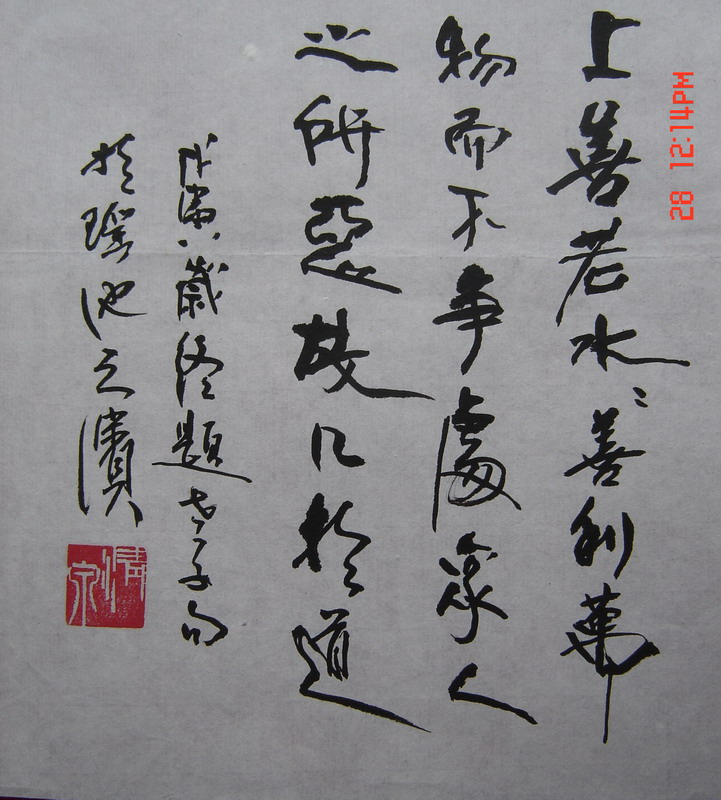 上善若水〻善利萬
物而不争處衆人
之所惡故几於道
戊寅歲終題老子句
於瑤池之濱
28 12:14PM